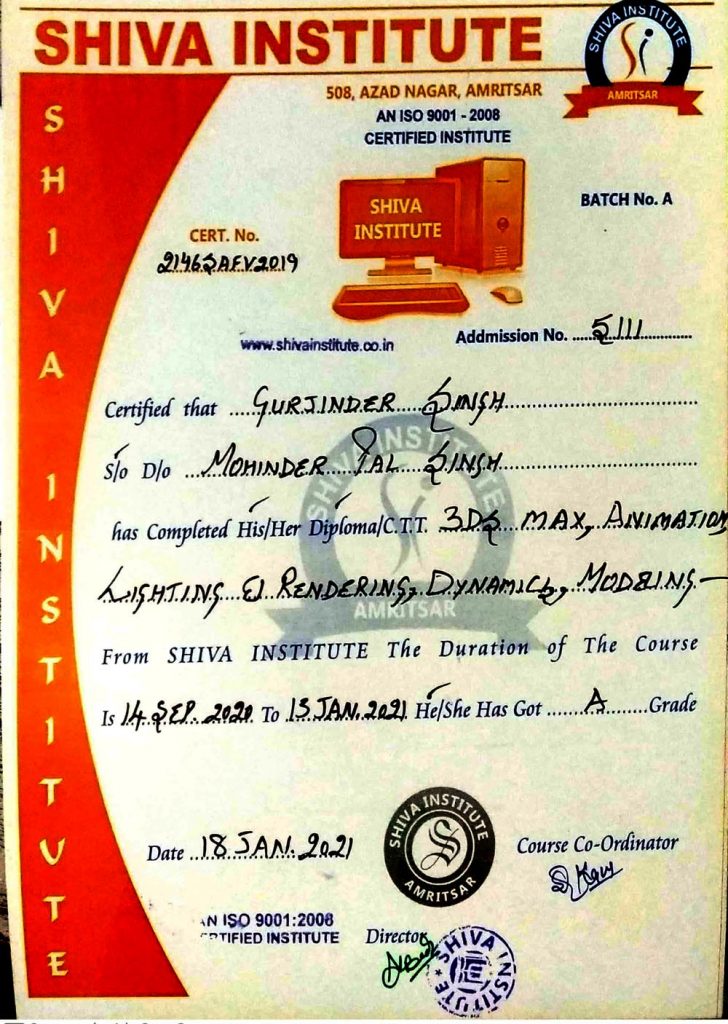 SHIVA INSTITUTE
SHIVA INSTITUTE
AMRITSAR
508, AZAD NAGAR, AMRITSAR
AN ISO 9001 - 2008
CERTIFIED INSTITUTE
SHIVA INSTITUTE
SHIVA
INSTITUTE
BATCH No. A
CERT. No.
2146SAFV2019
www.shivainstitute.co.in
Addmission No. ...S111...
Certified that ...GURJINDER SINGH...
S/o D/o ...MOHINDER PAL SINGH...
has Completed His/Her Diploma/C.T.T. 3DS MAX, ANIMATION
LIGHTING & RENDERING, DYNAMICS,
SHIVA INSTITUTE
AMRITSAR
From SHIVA INSTITUTE The Duration of The Course
Is 14 SEP. 2020 To 13 JAN. 2021 He/She Has Got ...A...Grade
Date ..18 JAN. 2021
SHIVA INSTITUTE
AMRITSAR
Course Co-Ordinator
AN ISO 9001:2008
CERTIFIED INSTITUTE
Director
SHIVA INSTITUTE